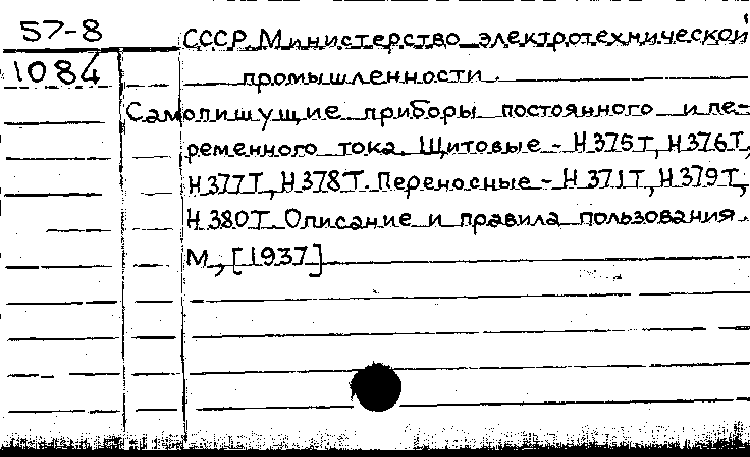 57-8
1084
СССР. Министерство электротехнической
промышленности.
Самопишущие приборы постоянного и пе-
ременного тока. Щитовые - Н375Т, Н376Т,
Н377Т, Н378Т. Переносные - Н371Т, Н379Т,
Н380Т. Описание и правила пользования.
М., [1937]